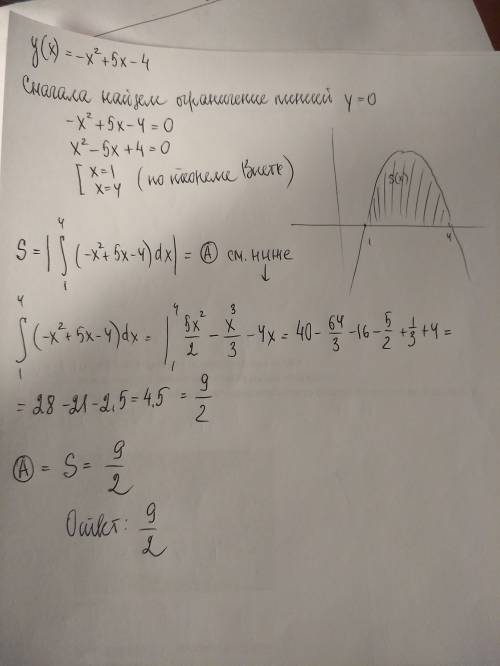 y(x) = -x² + 5x - 4
Сначала найдем ограничение линией y=0
-x² + 5x - 4 = 0
x² - 5x + 4 = 0
[ x=1
x=4 (по теореме Виета)
S(x)
1 4
S = | ∫₁⁴ (-x² + 5x - 4) dx | = Ⓐ см. ниже
↓
∫₁⁴ (-x² + 5x - 4) dx = |₁⁴ 5x²/2 - x³/3 - 4x = 40 - 64/3 - 16 - 5/2 + 1/3 + 4 =
= 28 - 21 - 2,5 = 4,5 = 9/2
Ⓐ = S = 9/2
Ответ: 9/2